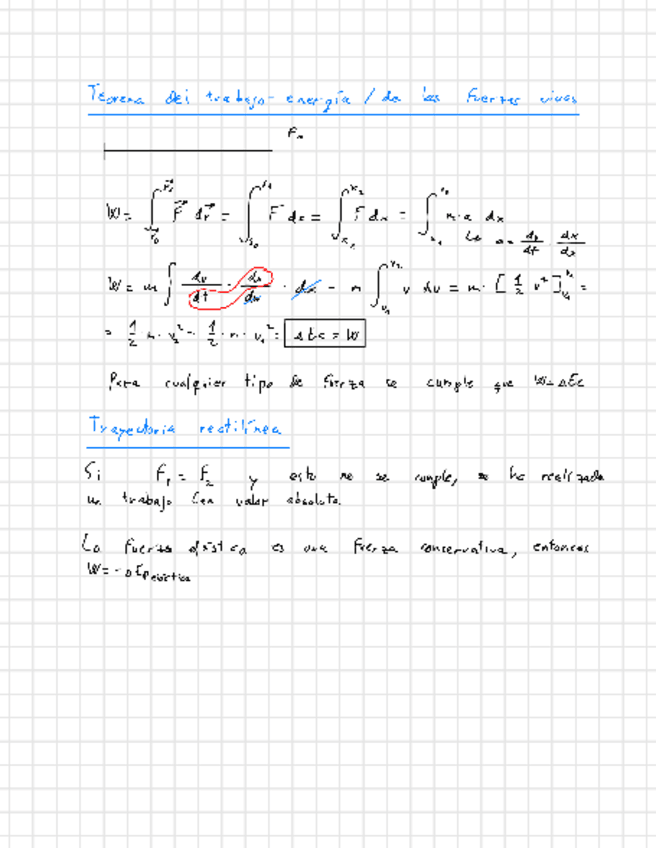 Teorema del trabajo-energía / de las fuerzas vivas
W = ∫ F⃗ dr⃗ = ∫ F ds = ∫ F dx = ∫ m·a dx
a = dv/dt · dx/dx
W = m ∫ dv/dt · dx/dv · dx = m ∫ v dv = m · [1/2 v²] =
= 1/2 · m · v₂² - 1/2 · m · v₁² = ΔEc = W
Para cualquier tipo de fuerza se cumple que W=ΔEc
Trayectoria rectilínea
Si F₁ = F₂ y esto no se cumple, se ha realizado
un trabajo con valor absoluto.
La fuerza elástica es una fuerza conservativa, entonces
W = -ΔEp elástica